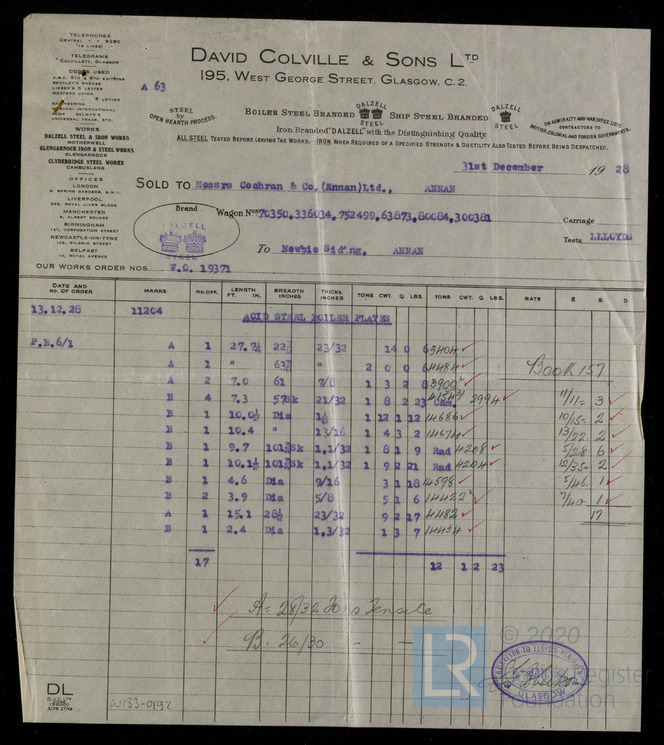 TELEPHONES
CENTRAL 9260
(12 LINES)
TELEGRAMS
"COLVILLETT, GLASGOW"
CODES USED
A.B.C. 5TH & 6TH EDITIONS
BENTLEY'S PHRASE
LIEBER'S 5 LETTER
WESTERN UNION
5 LETTER
ENGINEERING
MARCONI INTERNATIONAL
UNIVERSAL TRADE, ETC.
WORKS
DALZELL STEEL & IRON WORKS
MOTHERWELL
GLENGARNOCK IRON & STEEL WORKS
GLENGARNOCK
CLYDEBRIDGE STEEL WORKS
CAMBUSLANG
OFFICES
LONDON
LIVERPOOL
225, ROYAL LIVER BLDGS
MANCHESTER
6, ALBERT SQUARE
BIRMINGHAM
147, CORPORATION STREET
NEWCASTLE-ON-TYNE
BELFAST
10, ROYAL AVENUE
DAVID COLVILLE & SONS LTD
195, WEST GEORGE STREET, GLASGOW, C.2.
A 63
STEEL BY OPEN HEARTH PROCESS.
BOILER STEEL BRANDED DALZELL STEEL SHIP STEEL BRANDED DALZELL STEEL
ON ADMIRALTY AND WAR OFFICE LISTS
CONTRACTORS TO
BRITISH, COLONIAL AND FOREIGN GOVERNMENTS.
Iron Branded "DALZELL" with the Distinguishing Quality.
ALL STEEL TESTED BEFORE LEAVING THE WORKS.—IRON WHEN REQUIRED OF A SPECIFIED STRENGTH & DUCTILITY ALSO TESTED BEFORE BEING DESPATCHED.
31st December 1928
SOLD TO Messrs Cochran & Co.(Annan)Ltd., ANNAN
Brand
DALZELL
STEEL
Wagon Nos 70350,336034,752499,63873,80084,300381
Carriage
Tests LLLOYDS
To Newbie Siding, ANNAN
OUR WORKS ORDER NOS. W.O. 19371
DATE AND NO. OF ORDER MARKS NO. OFF. LENGTH FT. IN. BREADTH INCHES THICKS INCHES TONS CWT. Q. LBS. TONS CWT. Q. LBS. RATE £ S. D.
13.12.28 11204
ACID STEEL BOILER PLATES
P.E.6/1 A 1 27.7¼ 22½ 23/32 14 0 6 3404
A 1 " 63¾ " 2 0 0 6 4484 Book 157
A 2 7.0 61 7/8 1 3 2 8 3900
B 4 7.3 57Sk 21/32 1 8 2 23 Cam 2994 11/11= 3
B 1 10.0½ Dia 1⅛ 1 12 1 12 14686 10/15= 2
B 1 10.4 " 13/16 1 4 3 2 14674 13/22= 2
B 1 9.7 101⅞Sk 1,1/32 1 8 1 9 Rad 4208 5/28 6
B 1 10.1½ 101⅞Sk 1,1/32 1 9 2 21 Rad 4204 12/35= 2
B 1 4.6 Dia 9/16 3 1 18 4598 5/46 1
B 2 3.9 Dia 5/8 5 1 6 14422 7/40 1
A 1 15.1 28½ 23/32 9 2 17 4482 17
B 1 2.4 Dia 1,3/32 1 3 7 14434
17 12 1 2 23
A = 28/32 Tons Tensile
B - 26/30 - -
LR
© 2020
Lloyd's Register
Foundation
GLASGOW
DL
W133-0192